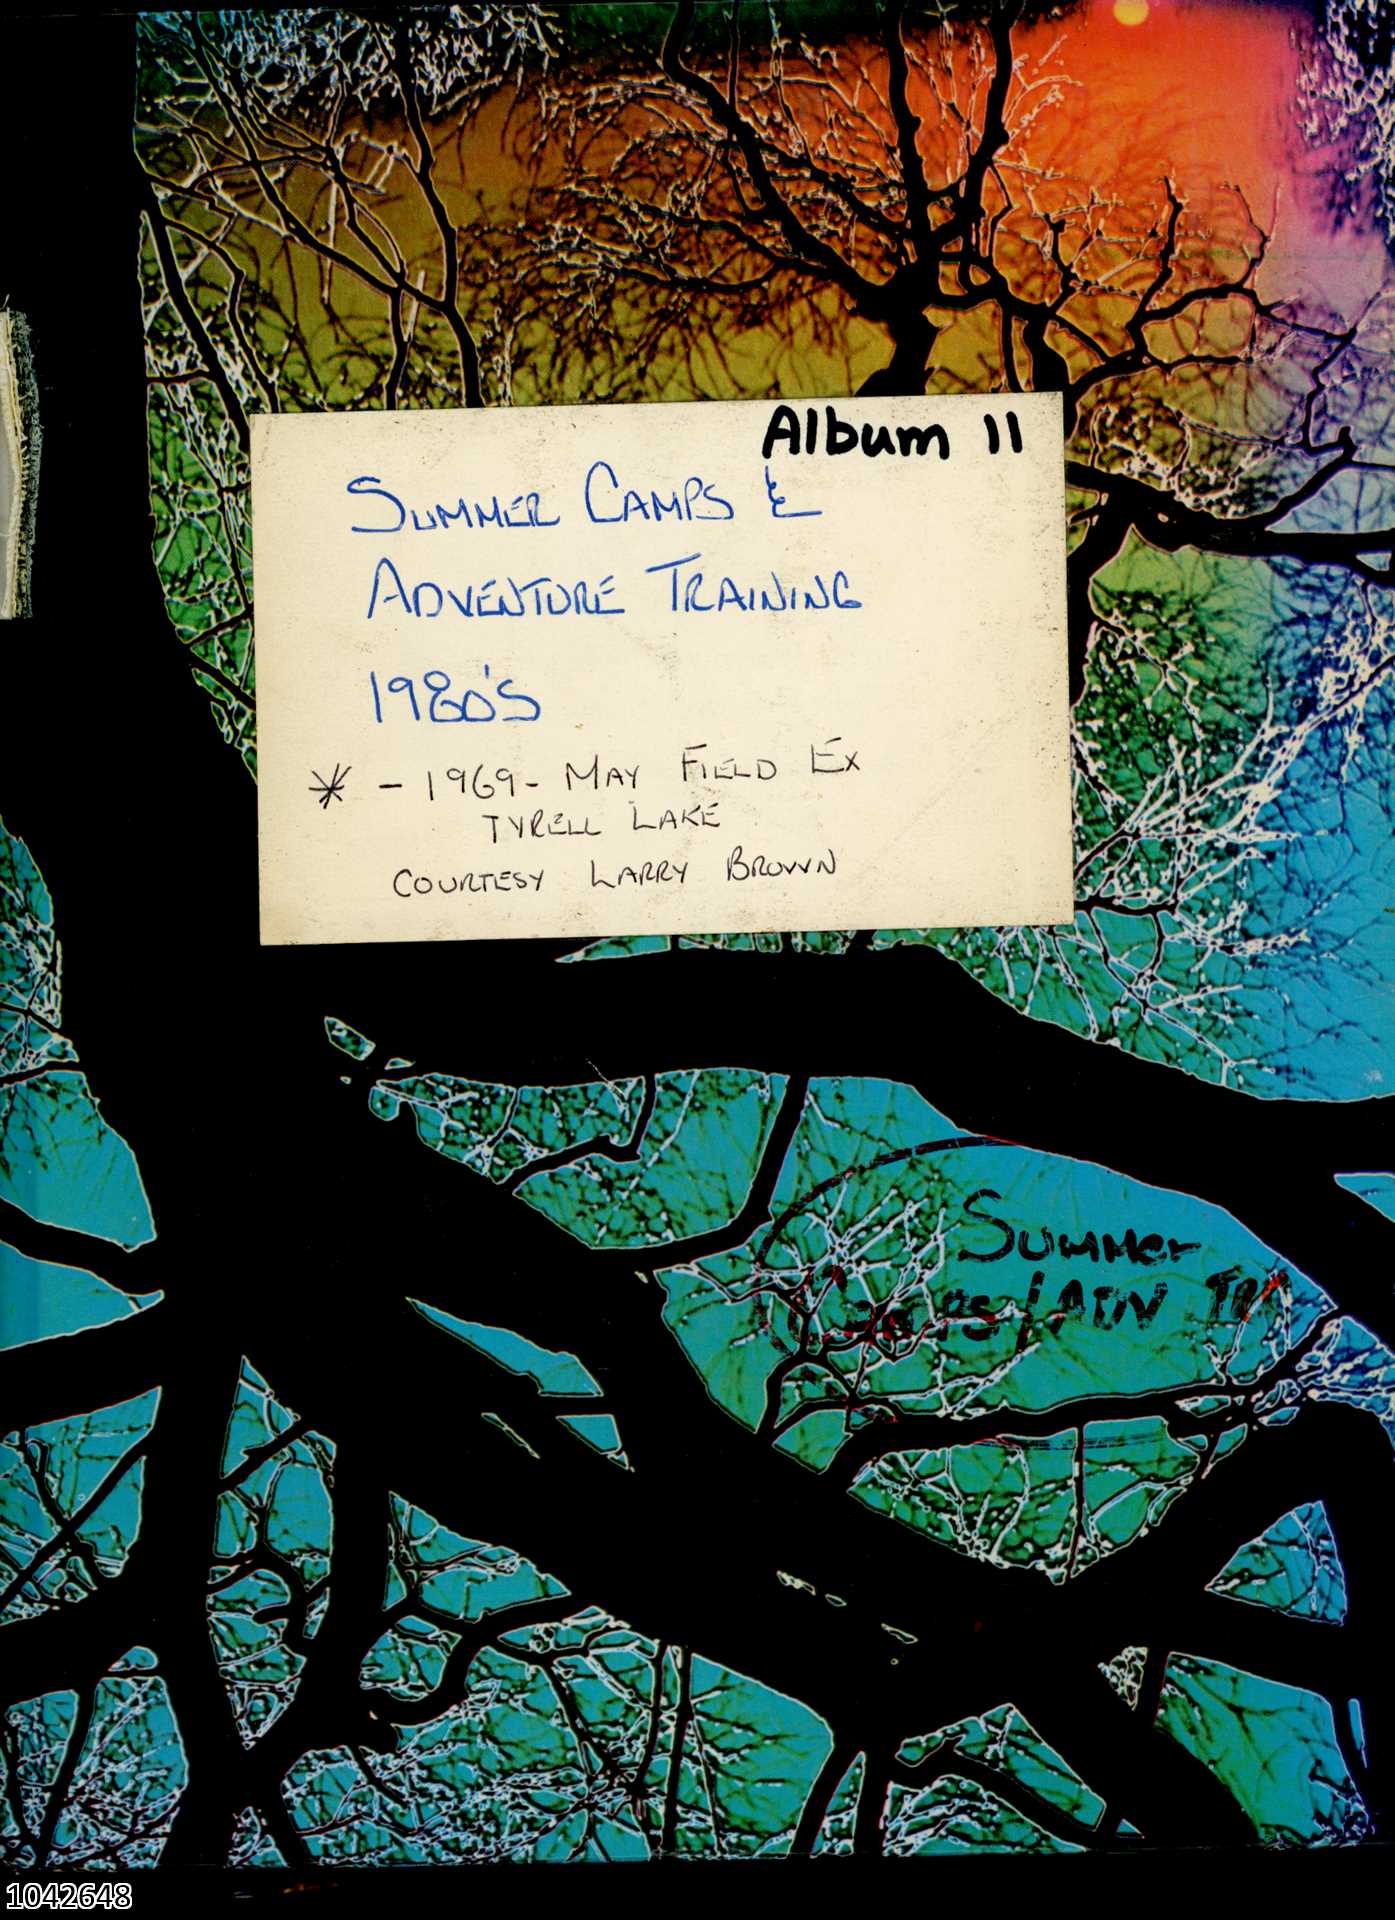 Album 11
SUMMER CAMPS &
ADVENTURE TRAINING
1980'S
* - 1969 - MAY FIELD EX
TYRELL LAKE
COURTESY LARRY BROWN
SUMMER
CAMPS / ADV TR
1042648